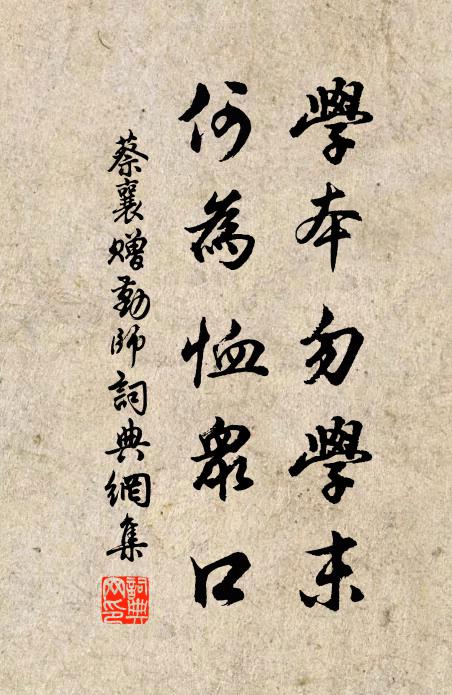 學本勿學末
何為恤眾口
蔡襄贈勤師詞典網集
詞典網印